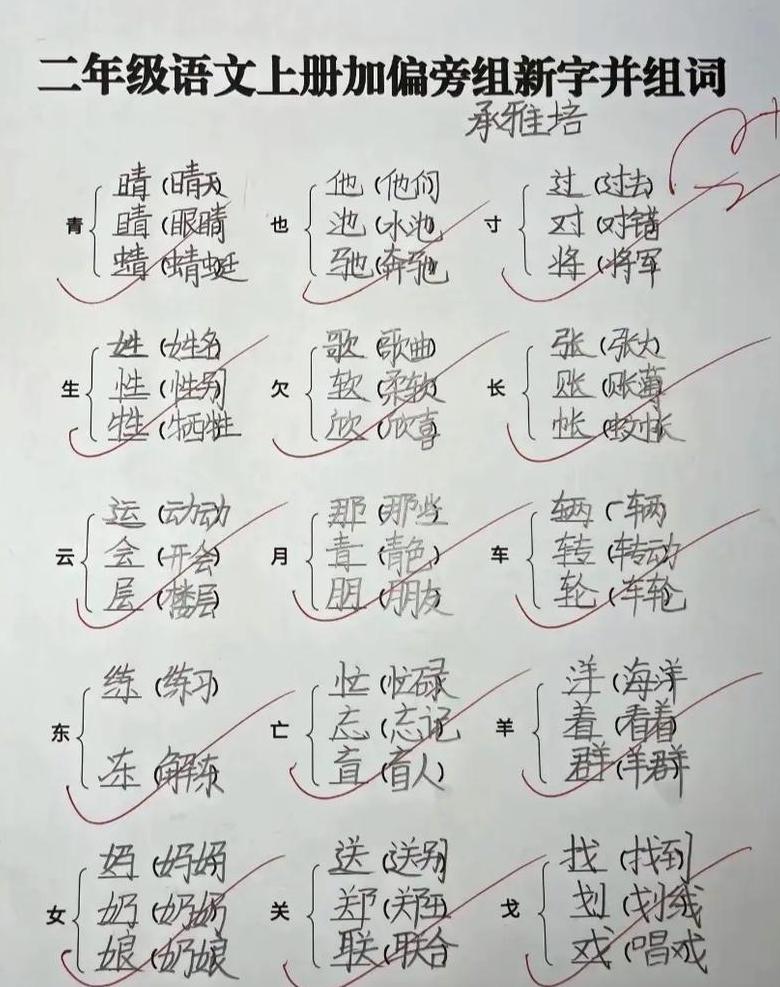 二年级语文上册加偏旁组新字并组词
承雅培
青
晴 (晴天)
睛 (眼睛
蜻 (蜻蜓
也
他 (他们
池 (水池)
驰 (奔驰)
寸
过 (过去)
对 (对错
将 (将军
生
姓 (姓名
性 (性别
牲 (牺牲
欠
歌 (歌曲)
软 (柔软)
欣 (欣喜
长
张 (张大
账 (账薄
帐 (蚊帐
云
运
会 (开会
层 (楼层
月
那 (那些
青 (青色)
朋 (朋友
车
辆 (一辆
转 (转动
轮 (车轮
东
练 (练习
冻 (解冻
亡
忙 (忙碌
忘 (忘记
盲 (盲人)
羊
洋 (海洋
着 (看着)
群 (羊群
女
妈 (妈妈
奶 (奶奶
娘 (奶娘
关
送 (送别
郑
联 (联合
戈
找 (找到
划
戏 (唱戏